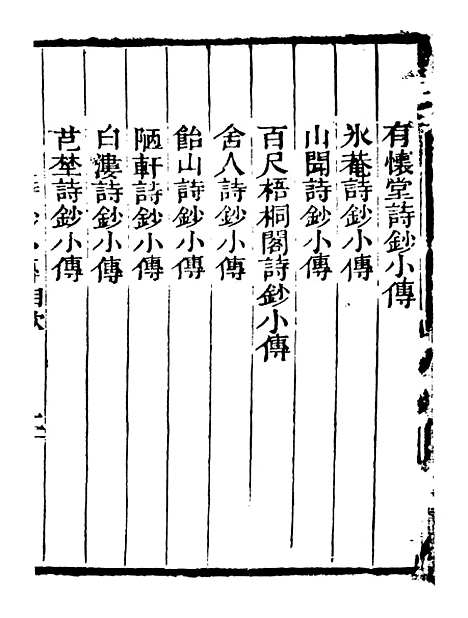 有懷堂詩鈔小傳
氷菴詩鈔小傳
山聞詩鈔小傳
百尺梧桐閣詩鈔小傳
舍人詩鈔小傳
飴山詩鈔小傳
陋軒詩鈔小傳
白漊詩鈔小傳
芑埜詩鈔小傳